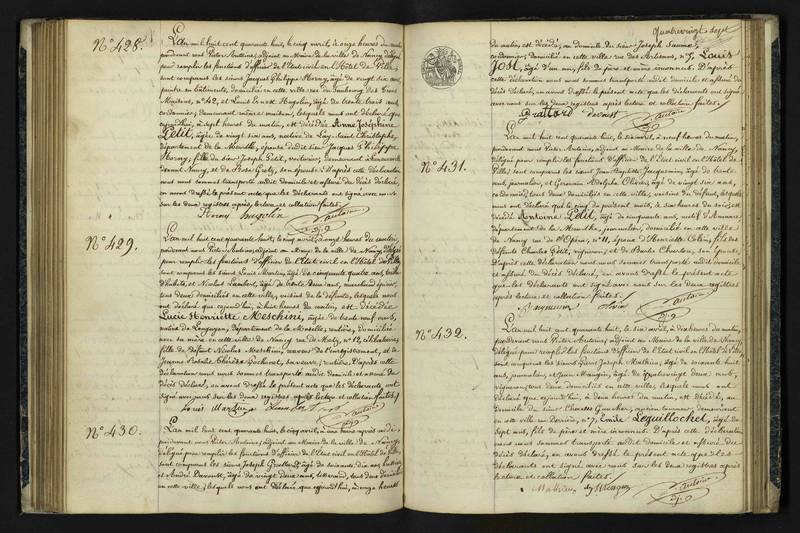 N° 428.
L'an mil huit cent quarante huit, le cinq avril, à onze heures du matin
pardevant nous Victor Antoine, adjoint au Maire de la ville de Nancy délégué
pour remplir les fonctions d'officier de l'Etat civil en l'Hôtel de Ville,
sont comparus les sieurs Jacques Philippe Morny, âgé de vingt six ans,
peintre en bâtiments, domicilié en cette ville rue du faubourg des Trois
Maisons, n° 42, et Louis Ernest Huguelin, âgé de trente trois ans
cordonnier, demeurant même maison, lesquels nous ont déclaré que
aujourd'hui, à sept heures du matin, est décédée Anne Joséphine
Petit, âgée de vingt six ans, native de Lay-Saint-Christophe,
département de la Meurthe, épouse dudit sieur Jacques Philippe
Morny, fille du sieur Joseph Petit, voiturier, demeurant à
devant Nancy, et de Rose son épouse. D'après cette déclaration
nous nous sommes transporté audit domicile et assuré du décès déclaré,
en avons dressé le présent acte que les déclarants ont signé avec nous
sur les deux registres après lecture et collation faites.
N° 429.
L'an mil huit cent quarante huit, le cinq avril, à onze heures du matin,
pardevant nous Victor Antoine, adjoint au Maire de la ville de Nancy délégué
pour remplir les fonctions d'officier de l'Etat civil en l'Hôtel de Ville
sont comparus les sieurs Louis Martin, âgé de cinquante quatre ans,
d'habits, et Nicolas Lambert, âgé de trente deux ans, marchand épicier,
tous deux domiciliés en cette ville, voisins de la défunte, lesquels nous
ont déclaré que cejourd'hui, à huit heures du matin, est décédée
Lucie Henriette Meschini, âgée de trente neuf ans,
native de Longuyon, département de la Moselle, rentière, domiciliée
avec sa mère en cette ville rue de Metz, n° 12, célibataire,
fille de défunt Nicolas Meschini, receveur de l'enregistrement, et de
sa veuve, rentière. D'après cette
déclaration nous nous sommes transporté audit domicile et assuré du
décès déclaré, en avons dressé le présent acte que les déclarants ont
signé avec nous sur les deux registres après lecture et collation faites.
Louis Martin
N° 430.
L'an mil huit cent quarante huit, le cinq avril, à une heure après midi
pardevant nous Victor Antoine, adjoint au Maire de la ville de Nancy,
délégué pour remplir les fonctions d'officier de l'Etat civil en l'Hôtel de Ville
sont comparus les sieurs Joseph âgé de soixante dix ans,
et André Davoust, âgé de vingt deux ans, tisserand, tous deux domiciliés
en cette ville, lesquels nous ont déclaré que aujourd'hui, à onze heures
Quatrevingt sept
du matin, est décédé, au domicile du sieur Joseph
cordonnier, domicilié en cette ville rue des Artisans, n° 7, Louis
José, âgé d'un an, fils de père et mère inconnus. D'après cette
déclaration nous nous sommes transporté audit domicile et assuré du
décès déclaré, en avons dressé le présent acte que les déclarants ont signé
avec nous sur les deux registres après lecture et collation faites.
Davoust
N° 431.
L'an mil huit cent quarante huit, le six avril, à neuf heures du matin,
pardevant nous Victor Antoine, adjoint au Maire de la ville de Nancy,
délégué pour remplir les fonctions d'officier de l'Etat civil en l'Hôtel de
Ville, sont comparus les sieurs Jean Baptiste Jacquemin, âgé de trente
ans, journalier, et Germain Adolphe Olivier, âgé de vingt six ans,
cordonnier, tous deux domiciliés en cette ville, voisins du défunt, lesquels
nous ont déclaré que le cinq du présent mois, à six heures du soir, est
décédé Antoine Petit, âgé de cinquante ans, natif d'Amance,
département de la Meurthe, journalier, domicilié en cette ville
de Nancy rue de l'Opéra, n° 11, époux d'Henriette Colin, fils des
défunts Charles Petit, vigneron, et de Barbe Charles, son épouse.
D'après cette déclaration nous nous sommes transporté audit domicile
et assuré du décès déclaré, en avons dressé le présent acte
que les déclarants ont signé avec nous sur les deux registres
après lecture et collation faites.
N° 432.
L'an mil huit cent quarante huit, le six avril, à dix heures du matin,
pardevant nous Victor Antoine, adjoint au Maire de la ville de Nancy
délégué pour remplir les fonctions d'officier de l'Etat civil en l'Hôtel de Ville
sont comparus les sieurs Pierre Joseph Mathieu, âgé de soixante huit
ans, journalier, et Jean Mangin, âgé de quatrevingt deux ans,
vigneron, tous deux domiciliés en cette ville, lesquels nous ont
déclaré que cejourd'hui, à deux heures du matin, est décédé, au
domicile du sieur Charles demeurant
en cette ville rue n° 7, Emile Lequillochet, âgé de
sept ans, fils de père et mère inconnus. D'après cette déclaration
nous nous sommes transporté audit domicile et assuré du
décès déclaré, en avons dressé le présent acte que les
déclarants ont signé avec nous sur les deux registres après
lecture et collation faites.
Mathieu Mangin